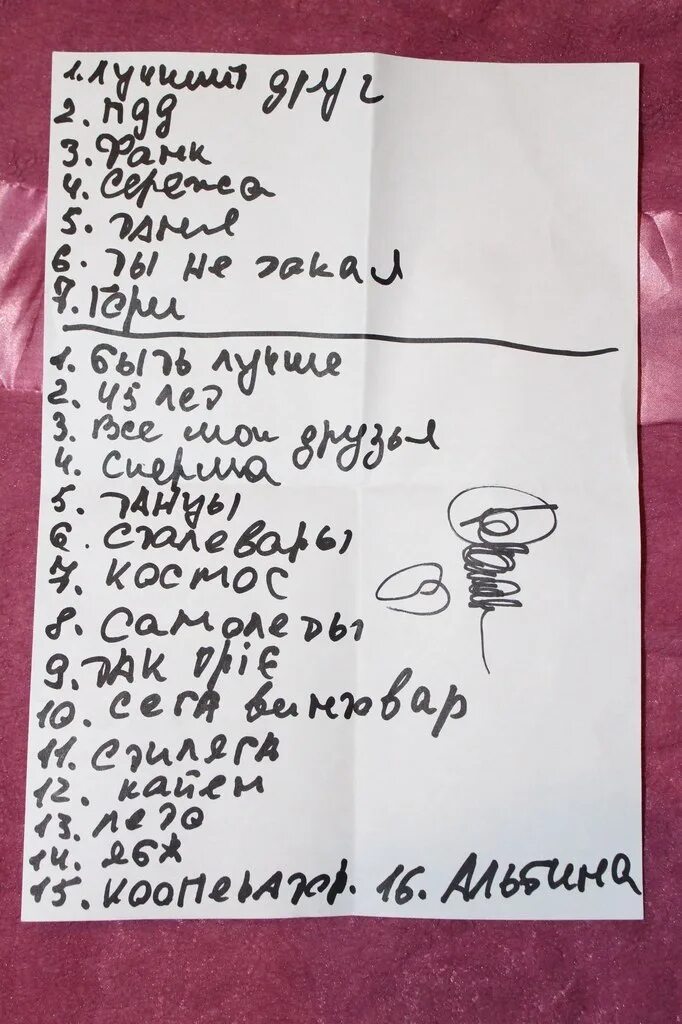 1. Лучший друг
2. ПДД
3. Фанк
4. Сережа
5. Таня
6. Ты не такая
7. Гори
1. Быть лучше
2. 45 лет
3. Все мои друзья
4. Сперма
5. Танцы
6. Сталевары
7. Космос
8. Самолеты
9. Так прiє
10. Сега винтовар
11. Стиляга
12. Кайен
13. Лето
14. ЯБЖ
15. Кооператор. 16. Альбина